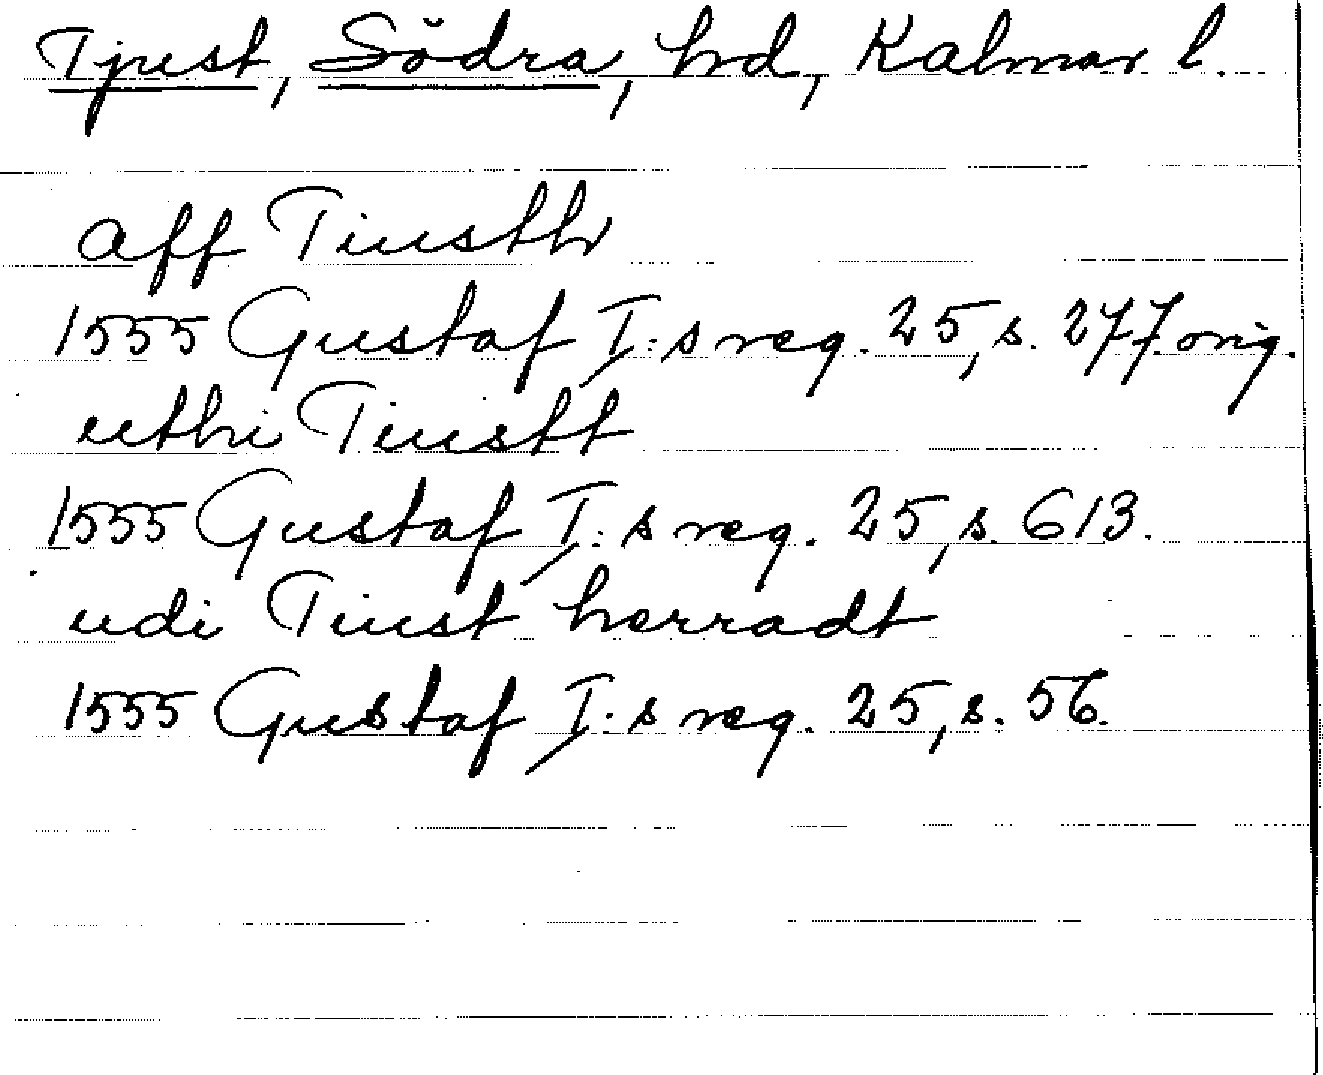 Tjust, Södra, hd, Kalmar l.
aff Tiusth
1555 Gustaf I:s reg. 25, s. 277. orig.
uthi Tiustt
1555 Gustaf I:s reg. 25, s. 613.
udi Tiust herradt
1555 Gustaf I:s reg. 25, s. 56.